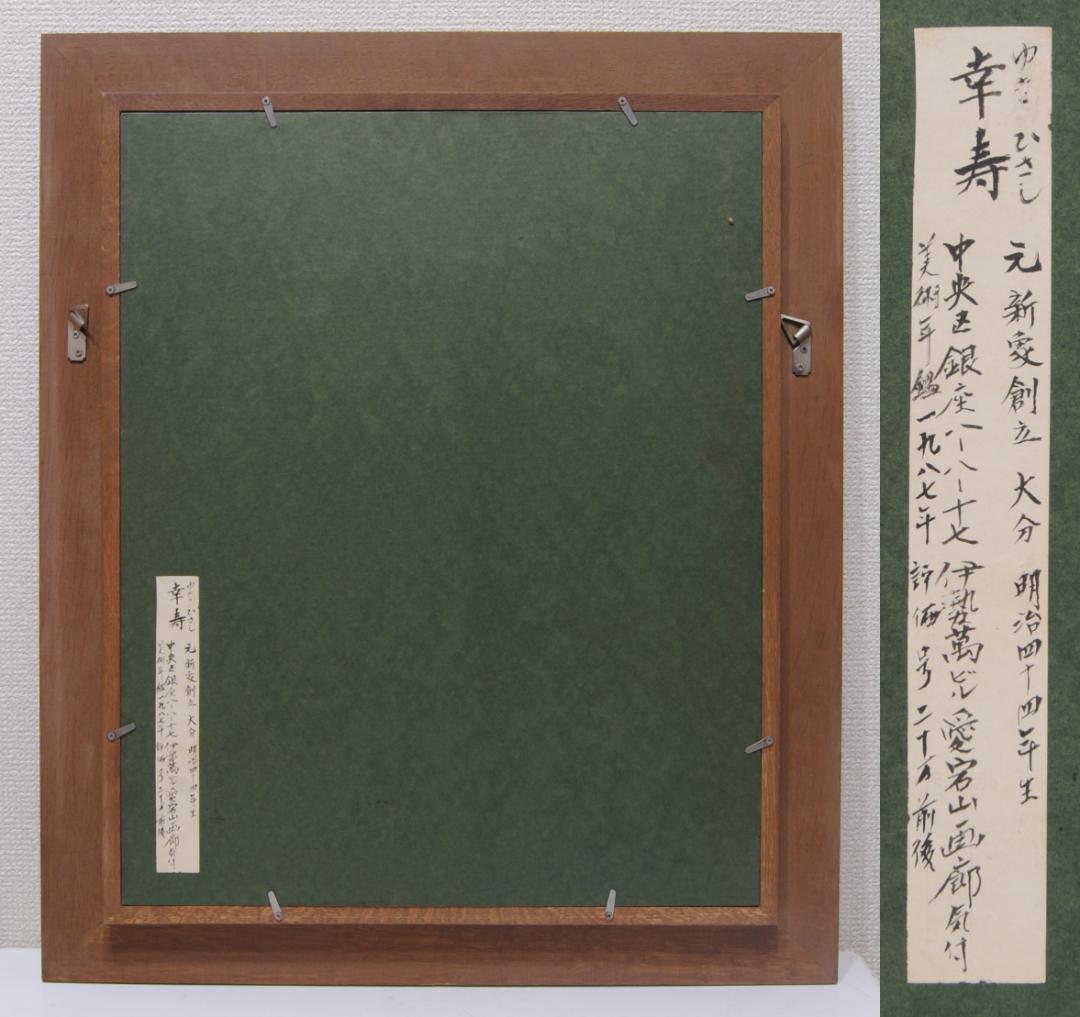 ゆき ひさし
幸寿
元 新象創立 大分 明治四十四年生
中央区銀座八ー八ー十七 伊勢萬ビル 愛宕山画廊気付
美術年鑑一九八七年 評価 号二十万前後